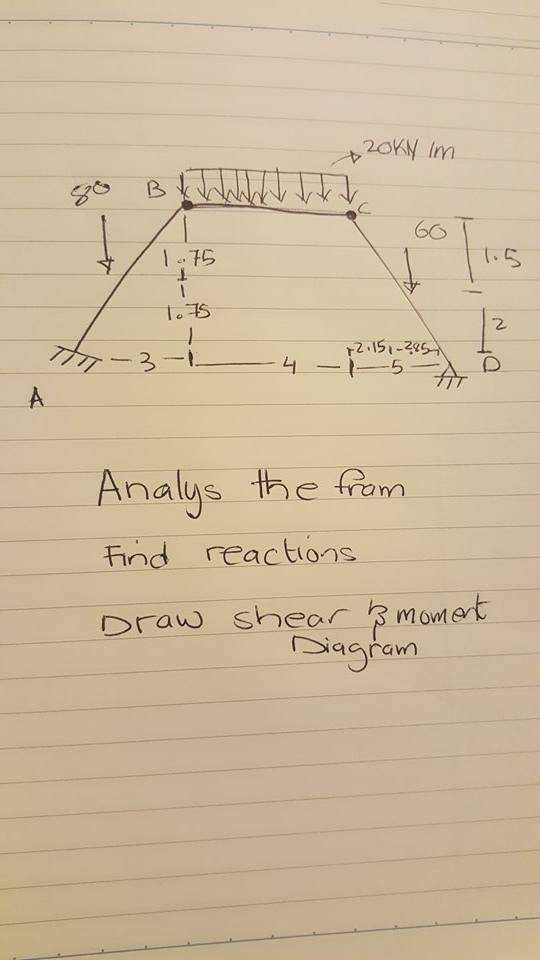 20KN/m
80
B
C
60
1.75
1.5
1.75
2
2.15 2.85
3
4
5
D
A
Analys the fram
Find reactions
Draw shear & moment
Diagram